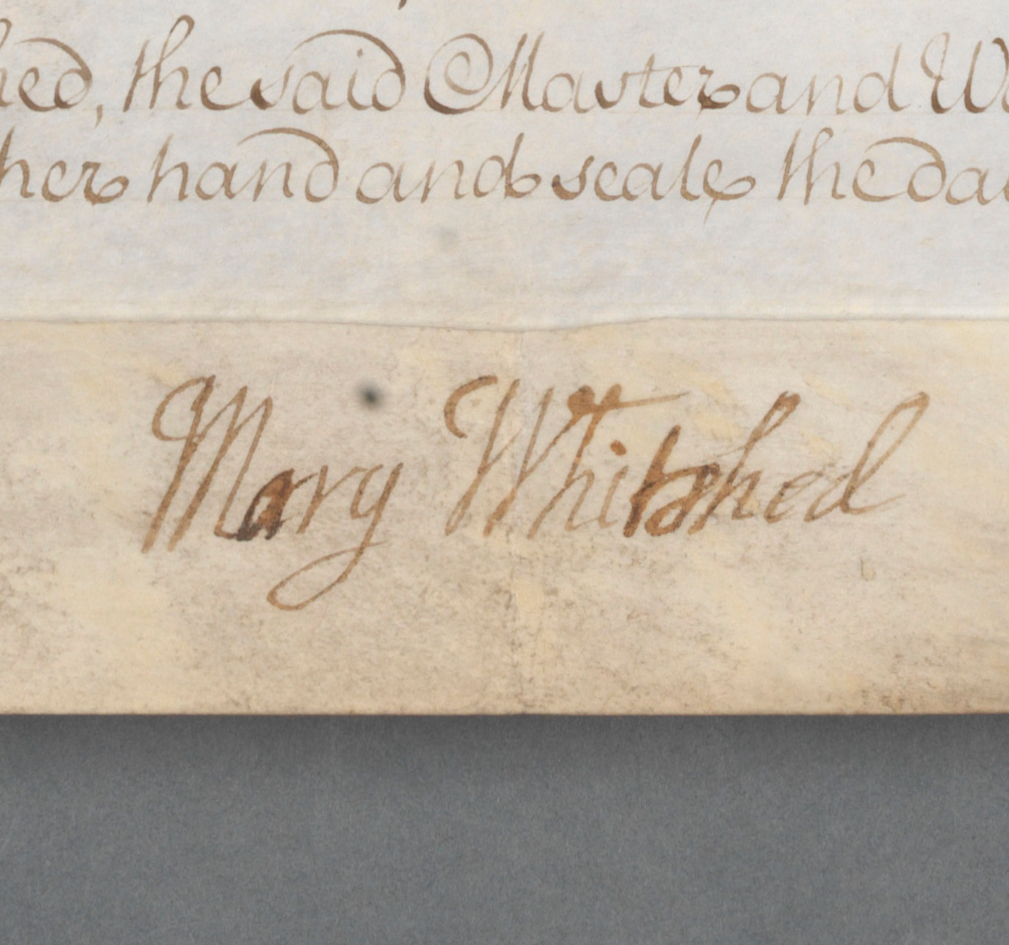 hed, the said Master and W
her hand and seale the da
Mary Whitched